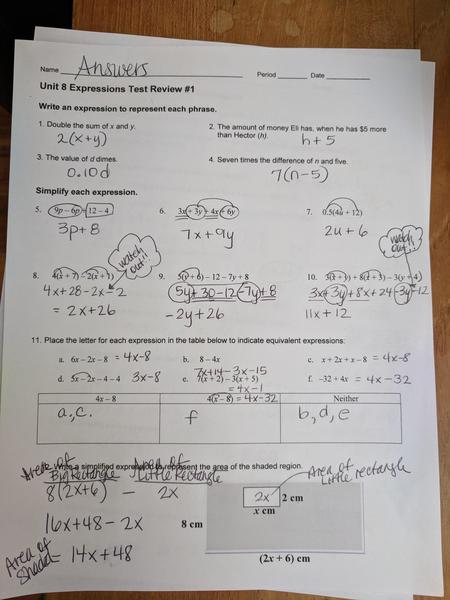 Name Answers Period Date
Unit 8 Expressions Test Review #1
Write an expression to represent each phrase.
1. Double the sum of x and y.
2(x+y)
2. The amount of money Eli has, when he has $5 more than Hector (h).
h+5
3. The value of d dimes.
0.10d
4. Seven times the difference of n and five.
7(n-5)
Simplify each expression.
5. 9p – 6p + 12 – 4
3p+8
6. 3x + 3y + 4x + 6y
7x+9y
7. 0.5(4u + 12)
2u+6
8. 4(x + 7) – 2(x + 1)
watch out!!
4x+28-2x-2
= 2x+26
9. 5(y + 6) – 12 – 7y + 8
5y+30-12-7y+8
-2y+26
10. 3(x + y) + 8(x + 3) – 3(y + 4)
watch out!!
3x+3y+8x+24-3y-12
11x+12
11. Place the letter for each expression in the table below to indicate equivalent expressions:
a. 6x – 2x – 8 = 4x-8
b. 8 – 4x
c. x + 2x + x – 8 = 4x-8
d. 5x – 2x – 4 – 4 3x-8
7x+14-3x-15
e. 7(x + 2) – 3(x + 5)
= 4x-1
f. –32 + 4x = 4x-32
4x – 8
4(x – 8) = 4x-32
Neither
a, c.
f
b, d, e
Write a simplified expression to represent the area of the shaded region.
Area of Big Rectangle
Area of Little Rectangle
8(2x+6) - 2x
16x+48-2x
Area of Shaded = 14x+48
Area of Little rectangle
2x
2 cm
x cm
8 cm
(2x + 6) cm